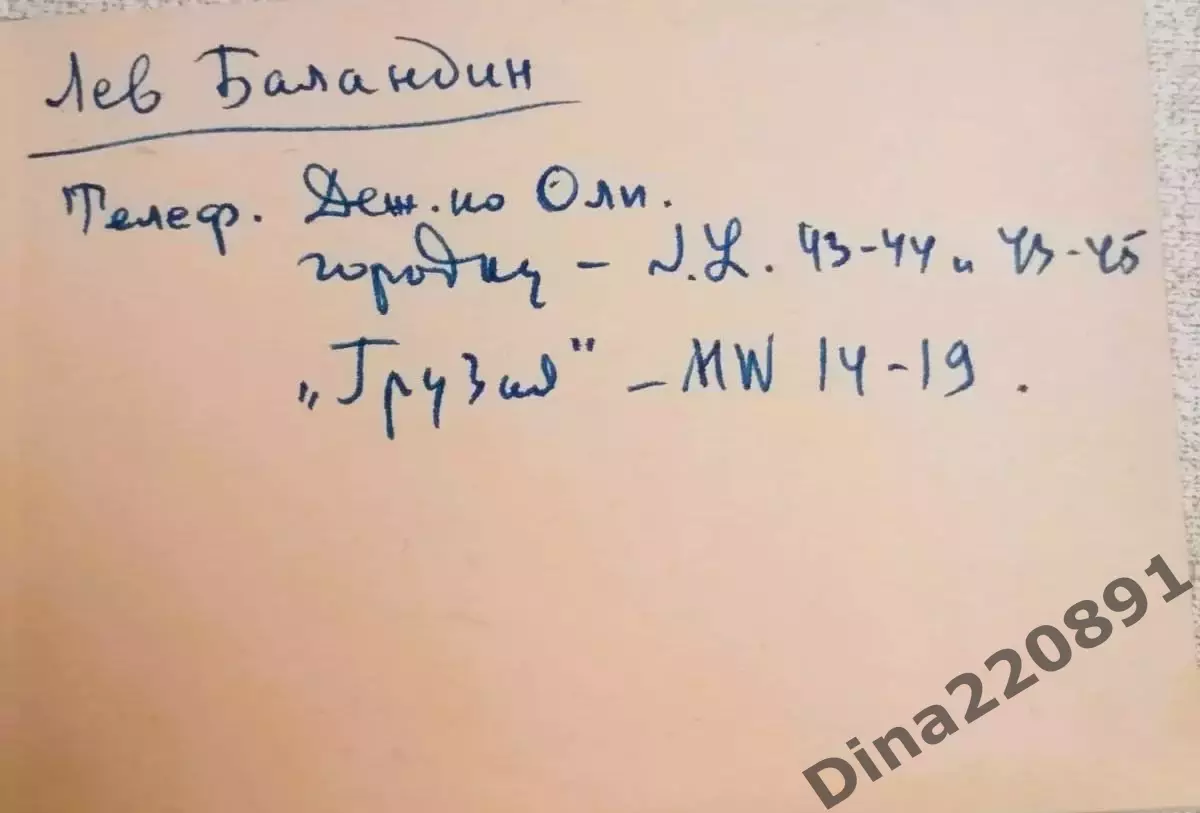 Лев Баландин
Телеф. Деж. по Оли.
городку – J.L. 43-44 и 43-45
„Грузия" – MW 14-19.
Dina220891